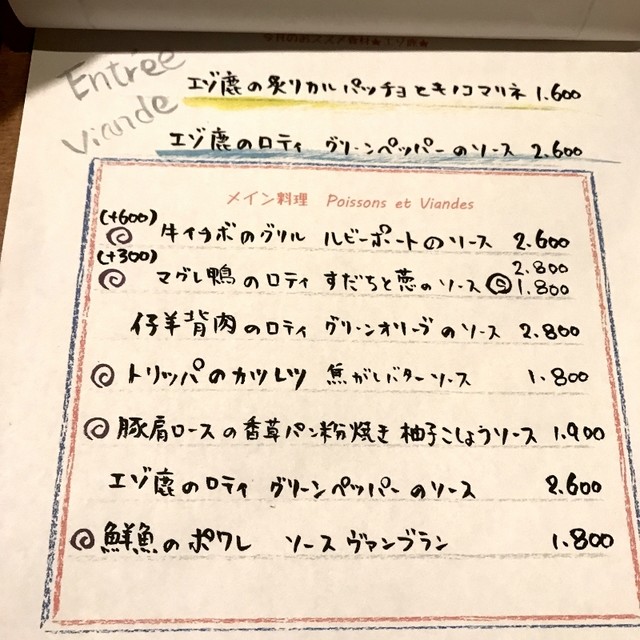 Entrée
エゾ鹿の炙りカルパッチョとキノコマリネ 1.600
Viande
エゾ鹿のロティ グリーンペッパーのソース 2.600
メイン料理 Poissons et Viandes
(+600)
牛イチボのグリル ルビーポートのソース 2.600
(+300)
マグレ鴨のロティ すだちと葱のソース 2.800
1.800
仔羊背肉のロティ グリーンオリーブのソース 2.800
トリッパのカツレツ 焦がしバターソース 1.800
豚肩ロースの香草パン粉焼き 柚子こしょうソース 1.900
エゾ鹿のロティ グリーンペッパーのソース 2.600
鮮魚のポワレ ソースヴァンブラン 1.800